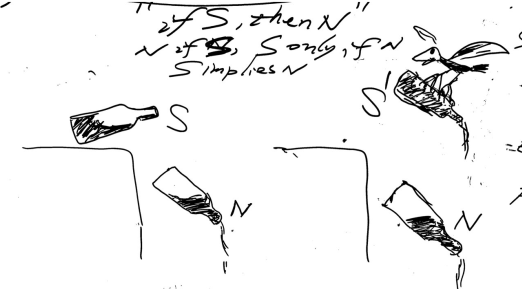 "if S, then N"
N if S, S only if N
S implies N
S
S'
N
N